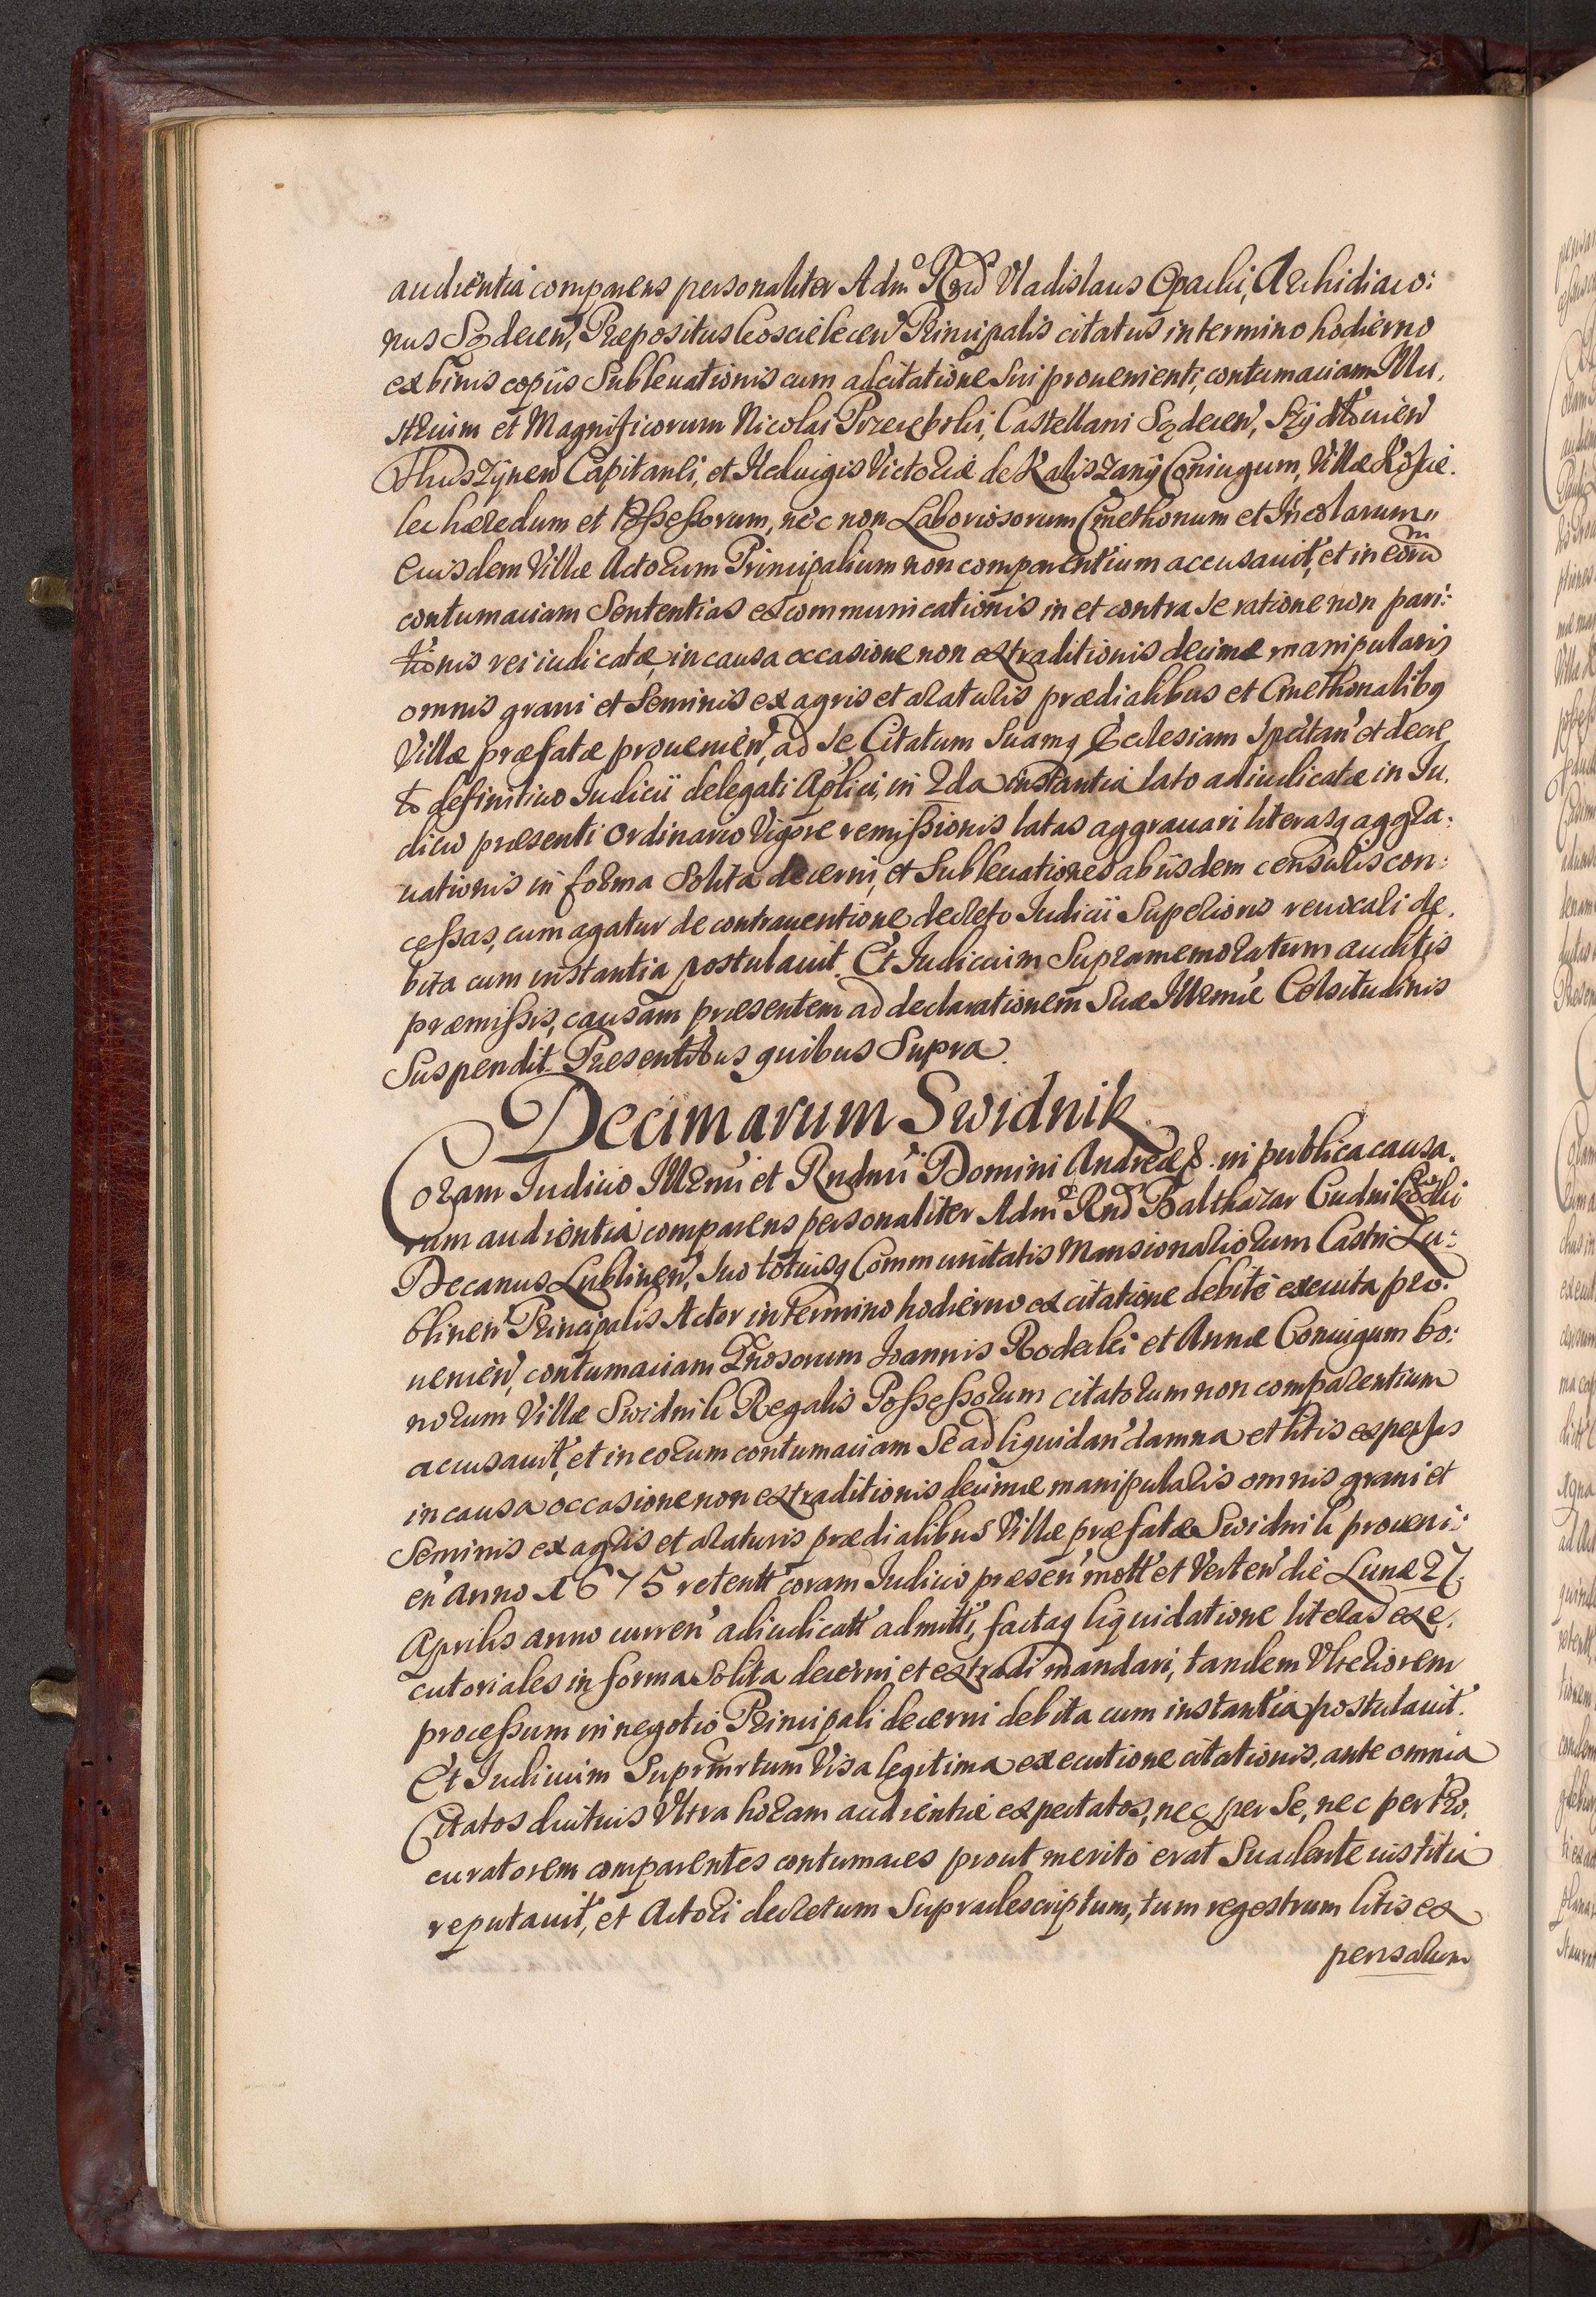 audientia comparens personaliter Adm° Rnd9 Vladislaus Opacki, Archidiaco:
nus Sądecen', Præpositus Koscielecen' Principalis citatus in termino hodierno
ex binis copijs Subleuationis cum adcitatione Sui prouenienti, contumaciam Illu,
strium et Magnificorum Nicolai Przerębski, Castellani Sądecen',
Capitanei, et Heduigis Victoriæ de Kaliszany Coniugum, Villæ Koscie.
lec hæredum et Possessorum, nec non Laboriosorum Cmethonum et Incolarum
Eiusdem Villæ Actorum Principalium non comparentium accusauit, et in eorum
contumaciam Sententias excommunicationis in et contra Se ratione non pari:
tionis rei iudicatæ, in causa occasione non extraditionis decimæ manipularis
omnis grani et Seminis ex agris et araturis prædialibus et Cmethonalibq
Villæ præfatæ prouenien', ad Se Citatum Suamq Ecclesiam Spectan' et decre
to definitiuo Iudicii delegati Aplici, in 2da instantia lato adiudicatæ in Iu,
dicio præsenti Ordinario Vigore remissionis latas aggrauari literasq aggra:
uationis in forma Solita decerni, et Subleuationes ab iisdem censuris con:
cessas, cum agatur de contrauentione decreto Iudicii Superioris reuocari de,
bita cum instantia postulauit. Et Iudicium Supramemoratum auditis
præmissis, causam præsentem ad declarationem Suæ Illrmæ Celsitudinis
Suspendit. Præsentibus quibus Supra.
Decimarum Swidnik
Coram Iudicio Illrmi et Rndmi Domini Andreæ &. in publica causa.
rum audientia comparens personaliter Adm° Rnd9 Balthazar Cudnikowski
Decanus Lublinen', Suo totiusq Communitatis Mansionariorum Castri Lu:
blinen' Principalis Actor in termino hodierno ex citatione debite executa pro:
uenien', contumaciam Gnosorum Ioannis Rodecki et Annæ Coniugum bo:
norum Villæ Swidnik Regalis Possessorum citatorum non comparentium
accusauit, et in eorum contumaciam Se ad liquidan' damna et litis expensas
in causa occasione non extraditionis decimæ manipularis omnis grani et
Seminis ex agris et araturis prædialibus Villæ præfatæ Swidnik proueni:
en' anno 1675 retentt' coram Iudicio præsen' mott' et Verten' die Lunæ 27.
Aprilis anno curren' adiudicatt' admitti, factaq liquidatione literas exe,
cutoriales in forma Solita decerni, et extradi mandari, tandem Vlteriorem
processum in negotio Principali decerni debita cum instantia postulauit.
Et Iudicium Suprmrtum Visa legitima executione citationis, ante omnia
Citatos diutius Vltra horam audientiæ expectatos, nec per Se, nec per Pro,
curatorem comparentes contumaces prout merito erat Suadente iustitia
reputauit, et Actori decretum Supradescriptum, tum regestrum litis ex
pensarum